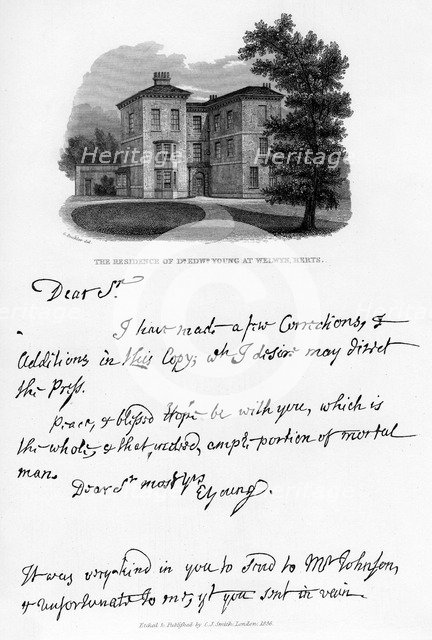 Heritage Heritage
Heritage Heritage
G. Buckler del.
THE RESIDENCE OF Dr. EDWd. YOUNG AT WELWYN, HERTS.
Dear Sr.
I have made a few Corrections, &
Additions in this Copy; wh I desire may direct
the Press.
Peace, & blessed Hope be with you, which is
the whole, & that, indeed, ample portion of mortal
man.
Dear Sr most yrs
EYoung.
It was very kind in you to send to Mr Johnson,
& unfortunate to me, yt you sent in vain.
Etched & Published by C.J. Smith, London, 1836.